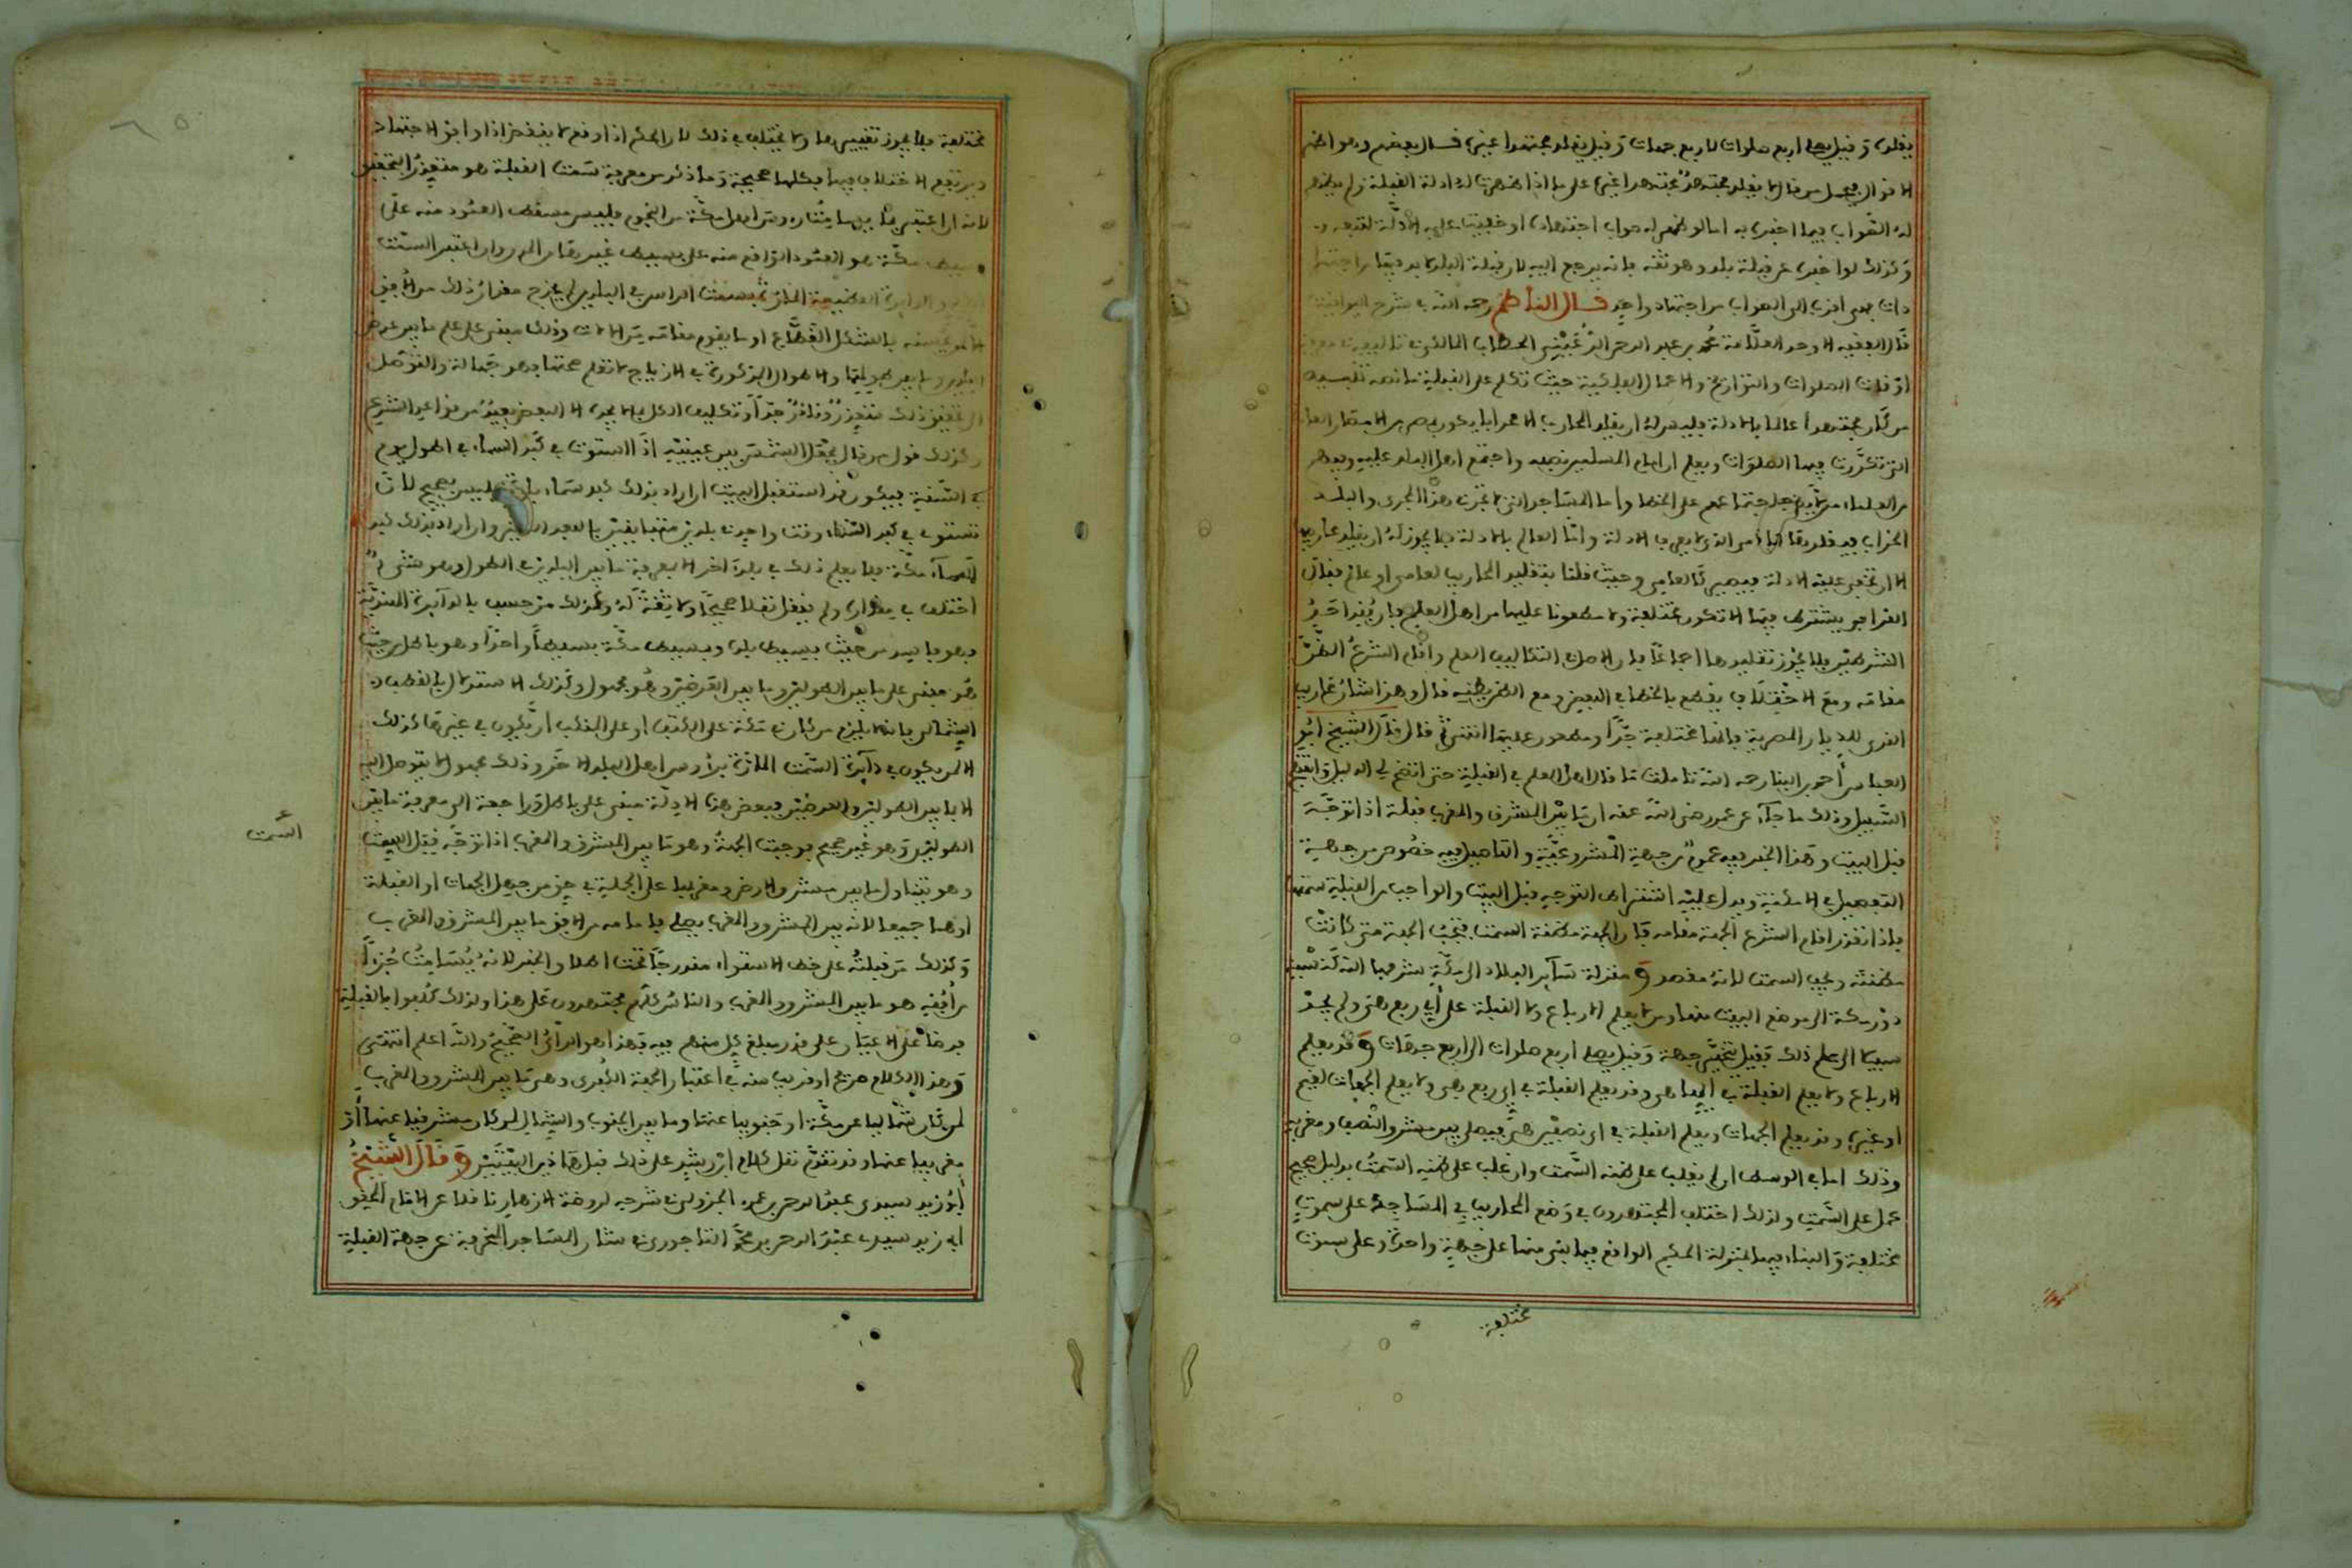 يقلد وقيل يصلي اربع صلوات لاربع جهات وقيل يقلد مجتهدا غيره قال بعضهم وهو اظهر
الاقوال من قال لا يقلد مجتهد مجتهدا غيره على ما اذا ظهرت له ادلة القبلة ولم يظهر
له الصواب فيما اخبره به اما لو ظهر له صواب اجتهاده او خفيت عليه الادلة لتبعه
وكذلك لو اخبره عن قبلة بلد وهو ثقة فانه يرجع اليه لان قبلة البلد
اقرب الى الصواب من اجتهاد واحد قال الناظم رحمه الله في شرح اليواقيت
قال الفقيه الاوحد العلامة محمد بن عبد الرحمن الحطاب المالكي في تاليفه في معرفة
اوقات الصلوات والتواريخ والاعمال الفلكية حيث تكلم على القبلة ما نصه تنبيه
من كان مجتهدا عالما بالادلة فليس له ان يقلد المحاريب الا ان يكون مصر من الامصار
التي تكررت فيها الصلوات ويعلم ان امام المسلمين نصبه واجتمع اهل البلد عليه وفيهم
من العلماء من لا يصح اجتماعهم على الخطا واما المساجد التي لا تجري هذا المجرى والبلد
الخراب فلا يقلدها الا من الذي لا يعرف الادلة واما العالم بالادلة فلا يجوز له ان يقلد محاريبه
الا ان تخفى عليه الادلة فيصير كالعامي وحيث قلنا بتقليد المحاريب لعامي او عالم فقال
القرافي يشترط فيها الا تكون مختلفة ولا مطعونا عليها من اهل العلم فان فقد احد
الشرطين فلا يجوز تقليدها اجماعا فان الاصل في التكاليف العلم واقام الشرع الظن
مقامه ومع الاختلاف يقطع بالخطا في البعض ومع الطعن يظنه قال وهذا شان محاريب
القرى بالديار المصرية فانها مختلفة جدا ومطعون عليها انتهى ثم قال قال الشيخ ابو
العباس احمد ابن البنا رحمه الله تاملت ما قاله اهل العلم في القبلة حتى اتضح لي الدليل واتضح
السبيل وذلك ما جاء عن عمر رضي الله عنه ان ما بين المشرق والمغرب قبلة اذا توجه
قبل البيت وهذا الخبر فيه عموم من جهة المشروعية والتاصيل وفيه خصوص من جهة
التفصيل في الامكنة ويدل عليه اشتراط التوجه قبل البيت والواجب من القبلة سمتها
فاذا تعذر اقام الشرع الجهة مقامه فان الجهة مظنة السمت فتجب الجهة متى كانت
مظنته ويجب السمت لانه مقصد ومنزلة سائر البلاد الى مكة شرفها الله كنسبة
دور مكة الى موضع البيت منها ومن لا يعلم الارباع ولا القبلة على اي ربع هي ولم يجد
سبيلا الى علم ذلك فقيل يتخير جهة وقيل يصلي اربع صلوات الى اربع جهات وقد يعلم
الارباع ولا يعلم القبلة في ايها هي وقد يعلم القبلة في اي ربع هي ولا يعلم الجهات لغيم
او غيره وقد يعلم الجهات ويعلم القبلة في اي نصفين هي فيصلي بين مشرق النصف ومغربه
وذلك اما في الوسط ان لم يغلب على ظنه السمت وان غلب على ظنه السمت بدليل صحيح
عمل على السمت ولذلك اختلف المجتهدون في وضع المحاريب في المساجد على سموت
مختلفة والبناء فيها بمنزلة الحكم الواقع فيما بني منها على جهة واحدة وعلى سموت
مختلفة
مختلفة فلا يجوز تغييرها ولا يختلف في ذلك لان الحكم اذا وقع لا ينقض اذا وافق الاجتهاد
ويرتفع الاختلاف فيها فكلها صحيحة وما ذكر من معرفة سمت القبلة هو متعذر التحقيق
لانه ان اعتبر بما يسامت رءوس اهل مكة من النجوم فليس مسقط العمود منه على
بسيط مكة هو العمود الواقع منه على بسيط غيرها من المدن وان اعتبر السمت
الدايرة العظيمة المارة بسمت الراس في البلدين لم يخرج مقدار ذلك من الافق
بالشكل القطاع او ما يقوم مقامه من الالات وذلك مبني على علم ما بين عرض
البلدين وما بين طوليهما والاطوال المذكورة في الازياج لا تعلم صحتها فهو جهالة والتوصل
الى تحقيق ذلك متعذر ونادر جدا وتكليف الكل ما لا يجده الا البعض بعيد من قواعد الشرع
وكذلك قول من قال يجعل الشمس بين عينيه اذا استوت في كبد السماء في اطول يوم
في السنة فيكون قد استقبل البيت ان اراد بذلك كبد سماء بلده فليس بصحيح لان
تستوي في كبد السماء وقت واحد في بلدين متباينين بالبعد الكثير وان اراد بذلك كبد
سماء مكة فلا يعلم ذلك في بلد اخر الا بمعرفة ما بين البلدين في الطول وهو شيء
اختلف في مقداره ولم ينقل نقلا صحيحا ولا يثق له وكذلك من حسب بالدائرة الهندية
وهو فاسد من حيث بسيط بلده وبسيط مكة بسيطا واحدا وهو باطل من حيث
هو مبني على ما بين الطولين وما بين العرضين وهو مجهول وكذلك الاستدلال بالقطب
الشمالي فانه يلزم من كانت مكة على الكتف او على المنكب ان يكون في غيرها كذلك
الا لمن يكون في دائرة السمت المارة برءوس اهل البلد الاخر وذلك مجهول لا يتوصل اليه
الا بما بين الطولين والعرضين فبعض هذه الادلة مبني على باطل وراجعة الى معرفة ما بين
الطولين وهو غير صحيح فوجبت الجهة وهو ما بين المشرق والمغرب اذا توجه قبل البيت
السمت
وهو يتناول ما بين مشرق الارض ومغربها على الجملة في حق من جهل الجهات او القبلة
او هما جميعا لانه بين المشرق والمغرب يصلي فامامه من الافق ما بين المشرق والمغرب
وكذلك من قبلته على خط الاستواء مندرجا تحت هذا الخبر لانه يسامت جزءا
من افقه هو ما بين المشرق والمغرب والناس كلهم مجتهدون على هذا ولذلك كلفوا بالقبلة
فرضا على الاعيان على قدر مبلغ كل منهم فيه فهذا هو الراي الصحيح والله اعلم انتهى
وهذا الكلام صريح او قريب منه في اعتبار الجهة الكبرى وهي ما بين المشرق والمغرب
لمن كان شماليا عن مكة او جنوبيا عنها وما بين الجنوب والشمال لمن كان مشرقيا عنها او
مغربيا عنها وقد تقدم نقل كلام ابن رشد على ذلك قبل هاذين البيتين وقال الشيخ
ابو زيد سيدي عبد الرحمن بن عمرو الجزولي في شرحه لروضة الازهار ناقلا عن الامام المحقق
ابي زيد سيدي عبد الرحمن بن محمد التاجوري في شان المساجد المنحرفة عن جهة القبلة